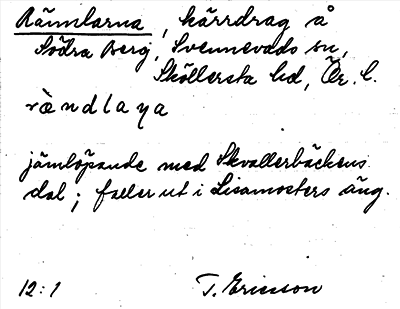 Rännlarna, kärrdrag å
Södra Berg, Svennevads sn,
Sköllersta hd, Ör. l.
ræ̀ndlaɳa
jämlöpande med Skvallerbäckens
dal; faller ut i Lisamosters äng.
12:1 T. Ericsson